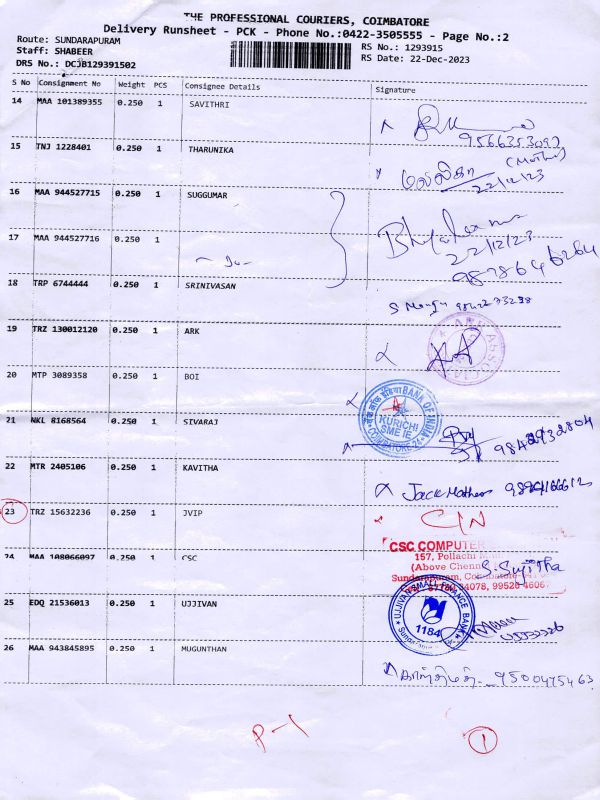 THE PROFESSIONAL COURIERS, COIMBATORE
Delivery Runsheet - PCK - Phone No.:0422-3505555 - Page No.:2
Route: SUNDARAPURAM
Staff: SHABEER
RS No.: 1293915
DRS No.: DCJB129391502
RS Date: 22-Dec-2023
S No Consignment No Weight PCS Consignee Details Signature
14 MAA 101389355 0.250 1 SAVITHRI
9566353097
(Mother)
15 TNJ 1228401 0.250 1 THARUNIKA
22/12/23
16 MAA 944527715 0.250 1 SUGGUMAR
22/12/23
17 MAA 944527716 0.250 1
9878646264
18 TRP 6744444 0.250 1 SRINIVASAN
19 TRZ 130012120 0.250 1 ARK
20 MTP 3089358 0.250 1 BOI
BANK OF INDIA
KURICHI
SME IE
COIMBATORE-24
21 NKL 8168564 0.250 1 SIVARAJ
22 MTR 2405106 0.250 1 KAVITHA
Jack Mathews
23 TRZ 15632236 0.250 1 JVIP
C/N
CSC COMPUTER
157, Pollachi
(Above Chenn
24 MAA 108066097 0.250 1 CSC
S. Sujitha
Sundarapuram, Coimbatore
34078, 99520 46067
25 EDQ 21536013 0.250 1 UJJIVAN
UJJIVAN SMALL FINANCE BANK
1184
26 MAA 943845895 0.250 1 MUGUNTHAN
9500475463
P-1
1